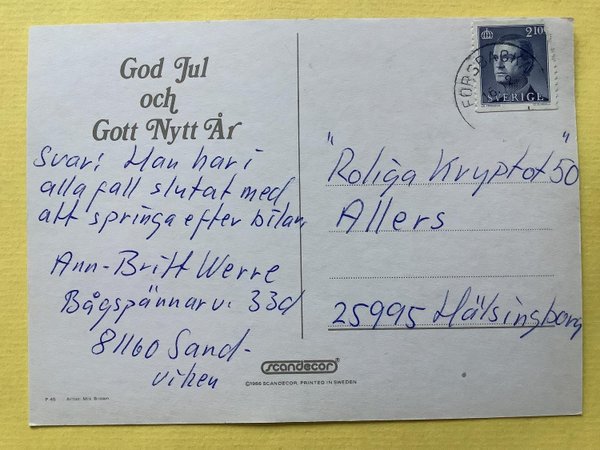 God Jul
och
Gott Nytt År
Svar: Han har i
alla fall slutat med
att springa efter bilar
Ann-Britt Werre
Bågspännarv. 33d
81160 Sand-
viken
2.10
SVERIGE
"Roliga Kryptot 50"
Allers
25995 Hälsingborg
scandecor
©1986 SCANDECOR, PRINTED IN SWEDEN